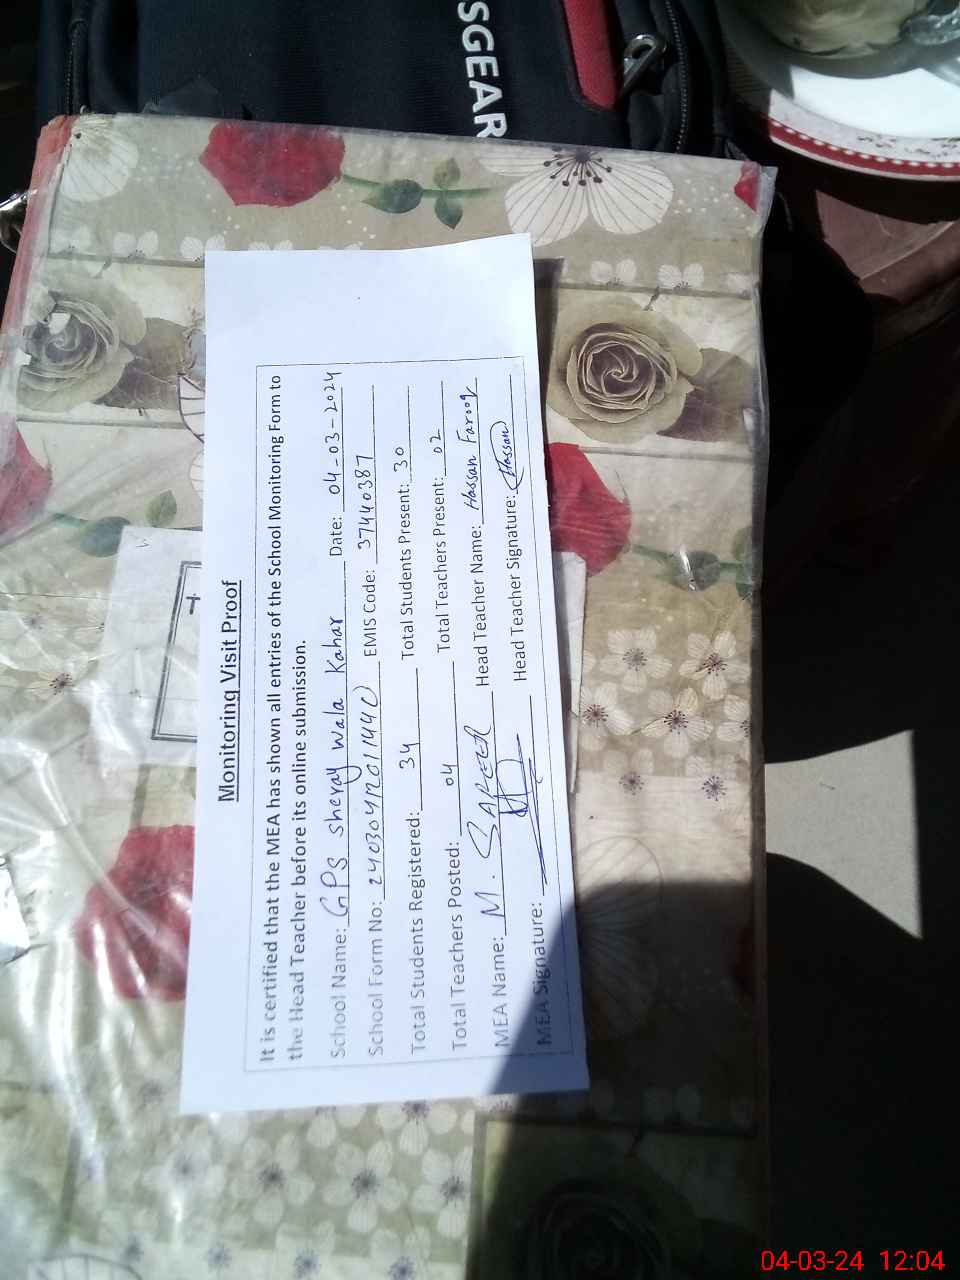 SGEAR
Monitoring Visit Proof
It is certified that the MEA has shown all entries of the School Monitoring Form to
the Head Teacher before its online submission.
School Name: GPS sheray wala Kahar Date: 04-03-2024
School Form No: 24030412011440 EMIS Code: 37440387
Total Students Registered: 34 Total Students Present: 30
Total Teachers Posted: 04 Total Teachers Present: 02
MEA Name: M. SAFEER Head Teacher Name: Hassan Farooq
MEA Signature: Head Teacher Signature: Hassan
04-03-24 12:04